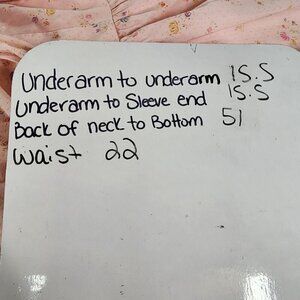 Underarm to underarm 15.5
Underarm to Sleeve end 15.5
Back of neck to Bottom 51
Waist 22